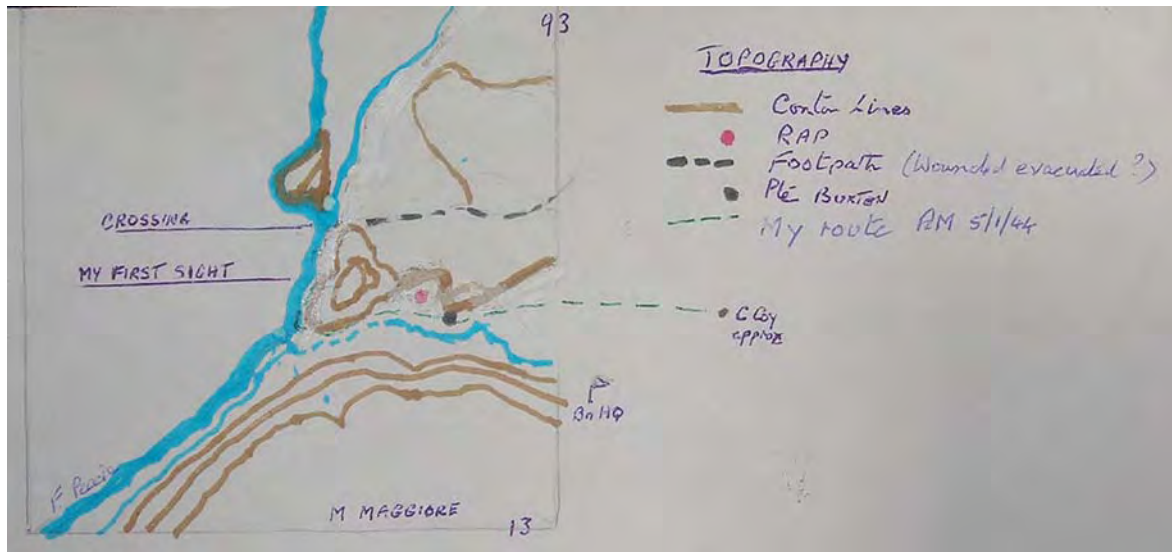 93
TOPOGRAPHY
Conton Lines
RAP
Footpath (Wounded evacuated ?)
Pte BUXTON
My route PM 5/1/44
CROSSING
MY FIRST SIGHT
C Coy
approx
Bn HQ
F. Peccia
M MAGGIORE
13